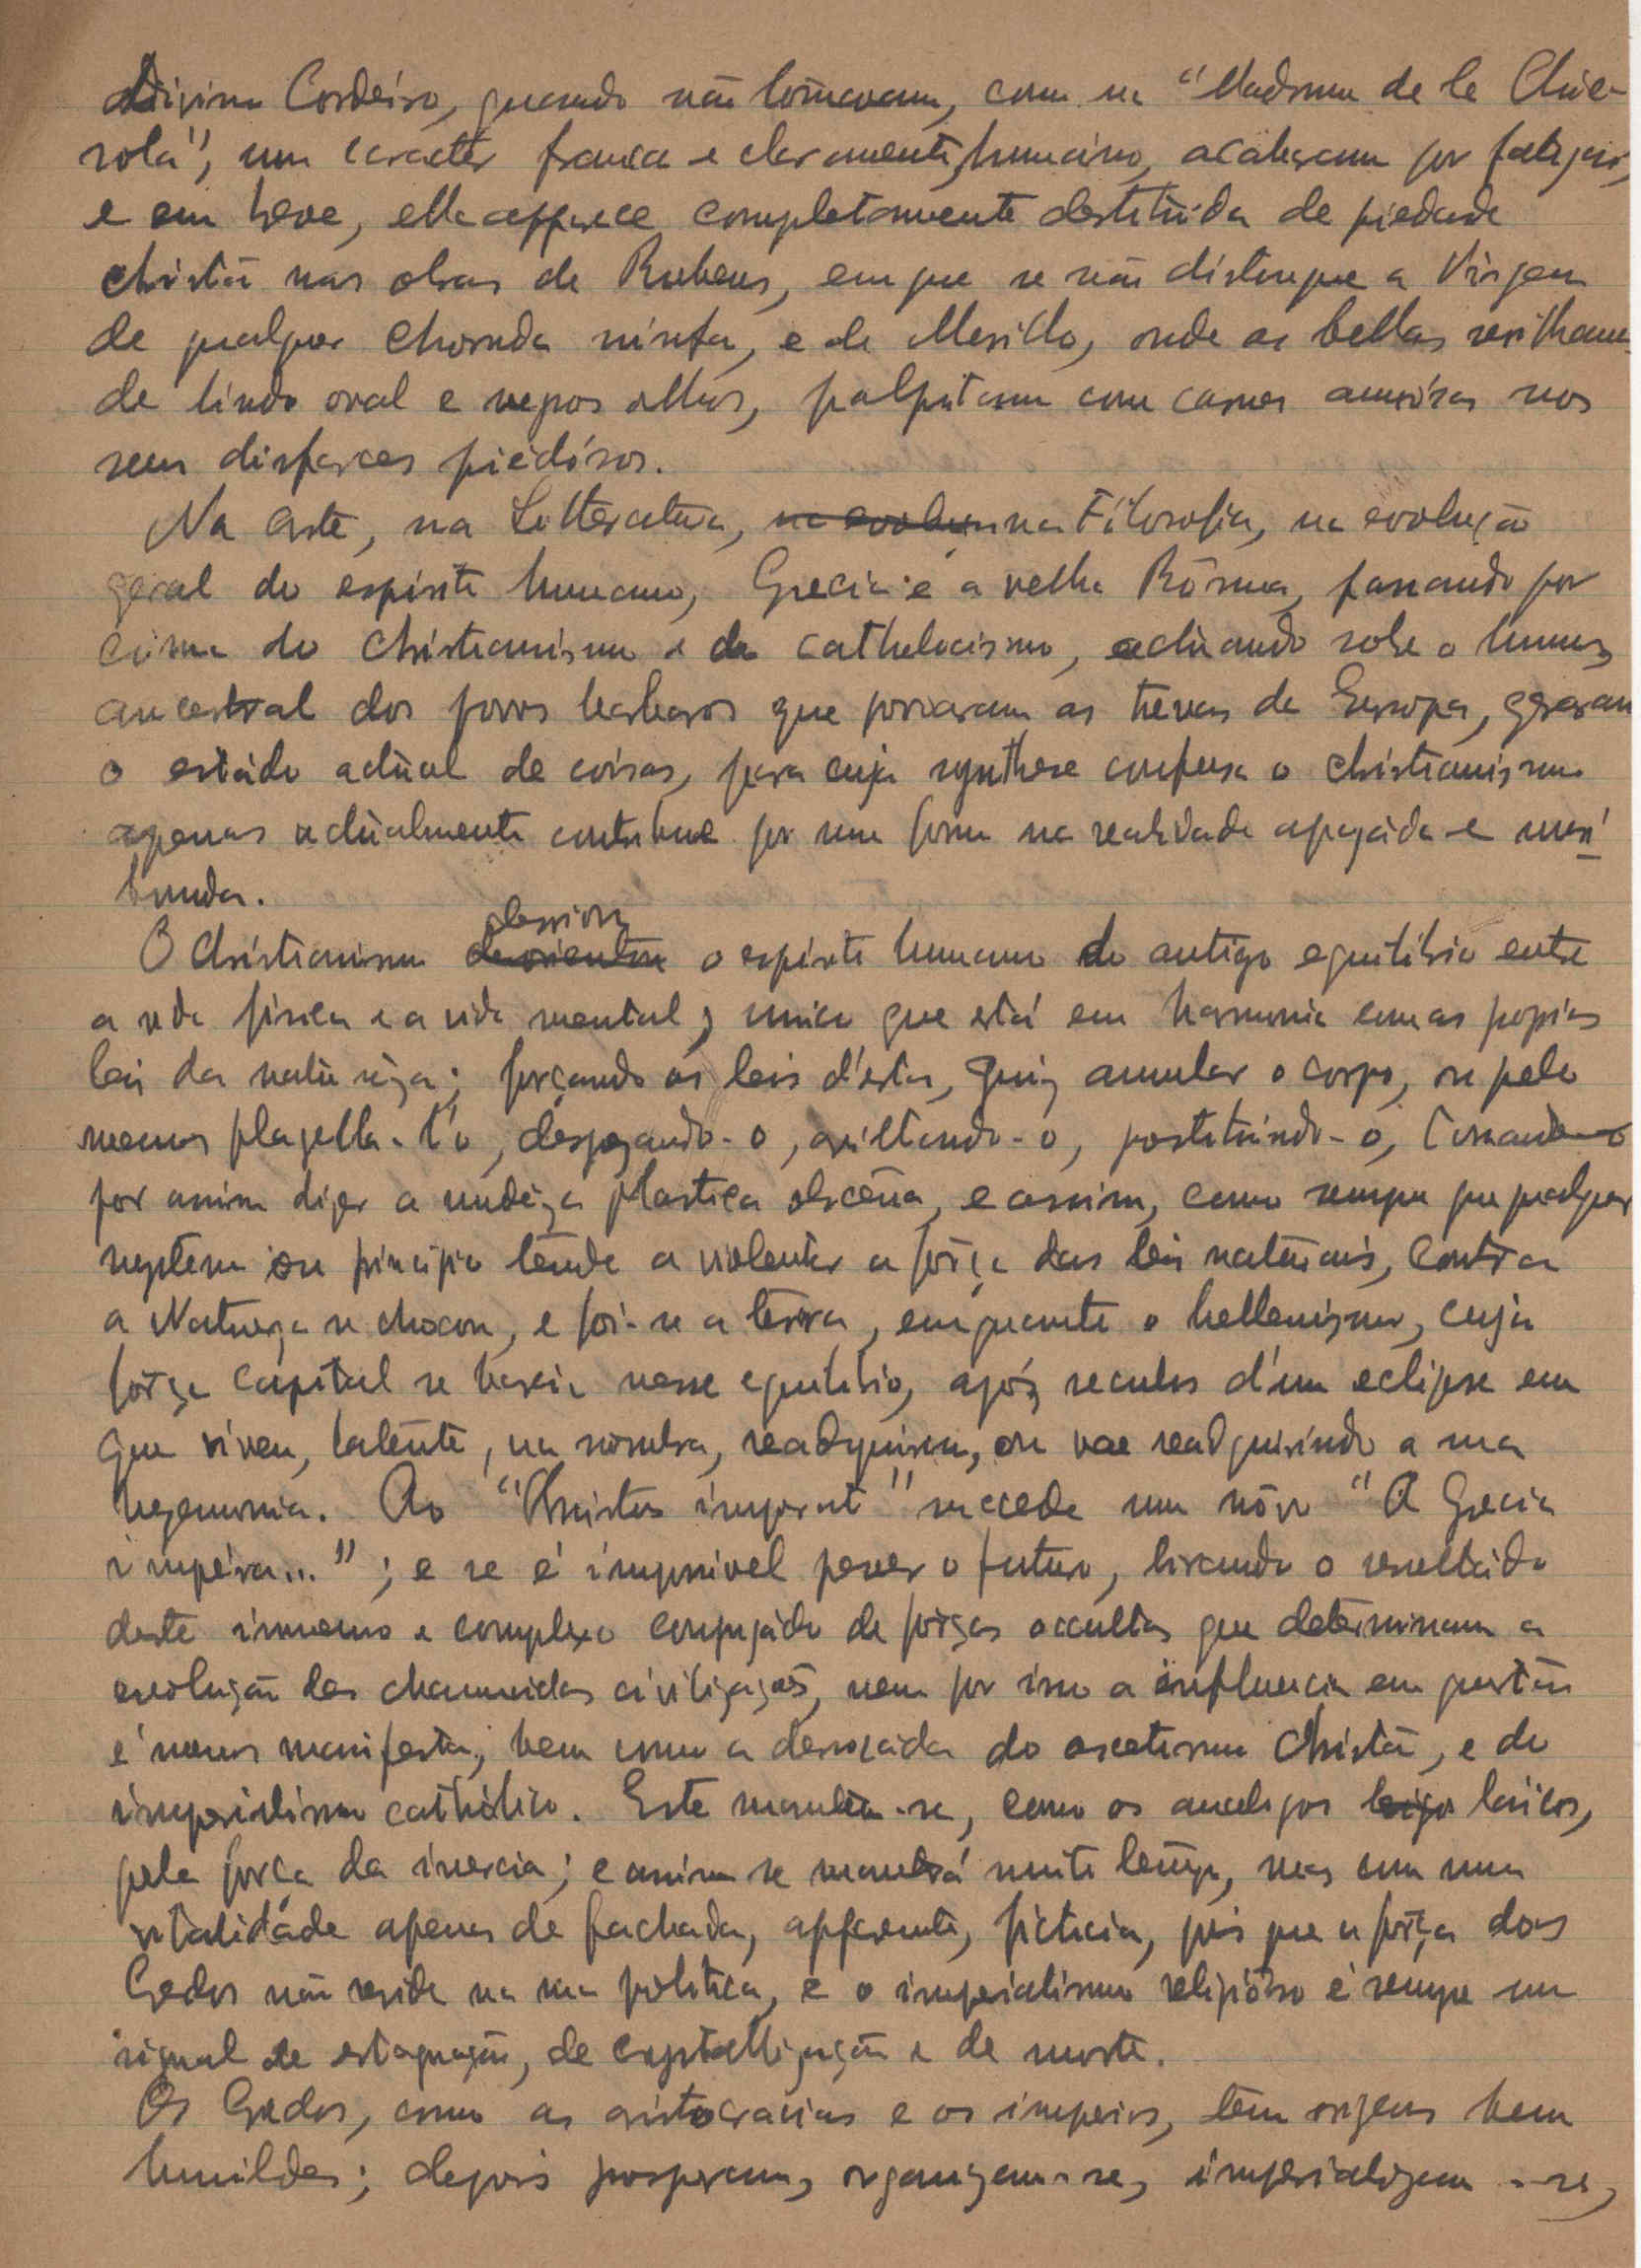 divino Cordeiro, quando não tomavam, como na "Madonna de la
rola", um caracter franca e claramente humano, acabaram por fatigar,
e em breve, ella apparece completamente destituida de piedade
christã nas obras de Rubens, em que se não distingue a Virgem
de qualquer ninfa, e de Murillo, onde as bellas sevilhanas
de lindo oval e negros olhos, palpitam com carnes amorosas nos
seus disfarces piedósos.
Na Arte, na Litteratura, na Filosofia, na evolução
geral do espirito humano, Grecia e a velha Rôma, passando por
cima do christianismo e do cathulocismo, actuando sobre o humus
ancestral dos povos barbaros que povoaram as trevas da Europa, geraram
o estádo actual de coisas, para cuja synthese confusa o christianismo
apenas actualmente contribue por uma forma na realidade apagáda e mori
bunda.
O Christianismo desviou o espirito humano do antigo equilibrio entre
a vida fisica e a vida mental, unico que está em harmonia com as proprias
leis da naturêza; forçando as leis d'esta, quiz annular o corpo, ou pelo
menos flagella-l'o, desprezando-o, aviltando-o, prostituindo-o, tornando
por assim dizer a nudêza plastica obscêna, e assim, como sempre que qualquer
systema ou principio tende a violentar a força das leis naturais, contra
a Natureza se chocou, e foi-se a terra, emquanto o hellenismo, cuja
força capital se baseia nesse equilibrio, após seculos d'um eclipse em
que viveu, latente, na sombra, readquiriu, ou vae readquirindo a sua
hegemonia. Ao "Christus imperat" succede um nôvo "A Grecia
impéra..."; e se é impossivel prever o futuro, tirando o resultádo
deste immenso e complexo conjugádo de forças occultas que determinam a
evolução das chamadas civilizações, nem por isso a influencia em questão
é menos manifesta, bem como a derrocada do ascetismo christã, e do
imperialismo cathólico. Este mantem-se, como os analogos laicos,
pela força da inercia; e assim se manterá muito tempo, mas com uma
vitalidáde apenas de fachada, apparente, ficticia, pois que a fôrça dos
Crédos não reside na sua politica, e o imperialismo religiôso é sempre um
signal de estagnação, de crystallização e de morte.
Os Credos, como as aristocracias e os imperios, têm origens bem
humildes; depois prosperam, organizam-se, imperializam-se,